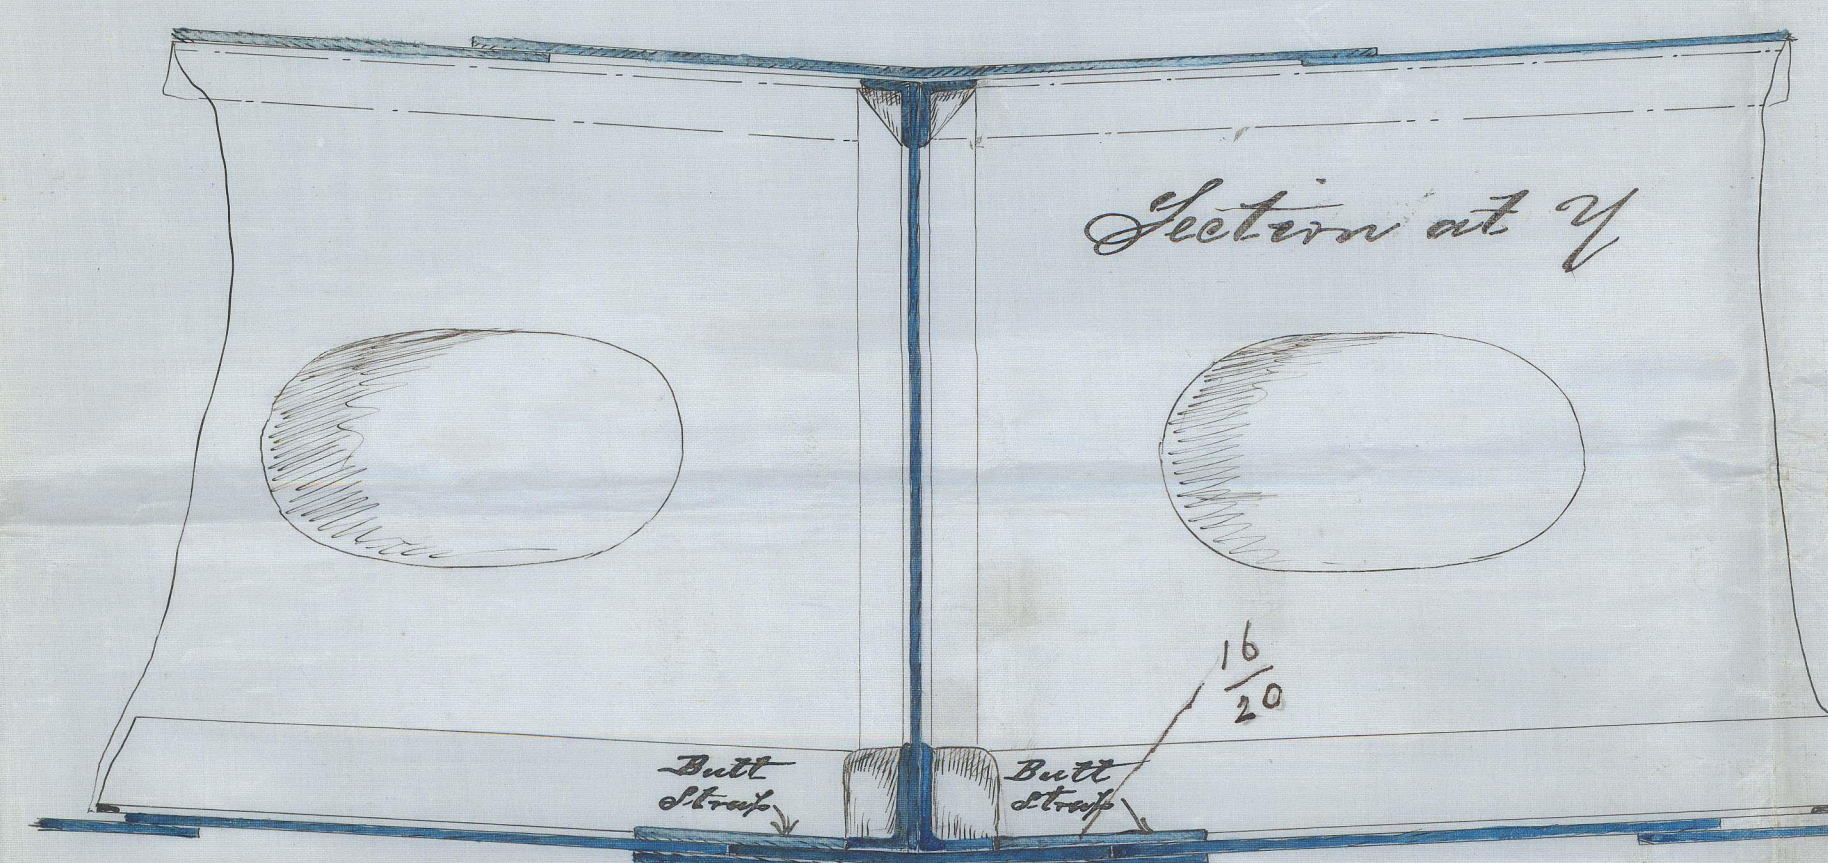 Section at Y
16
20
Butt
Strap
Butt
Strap